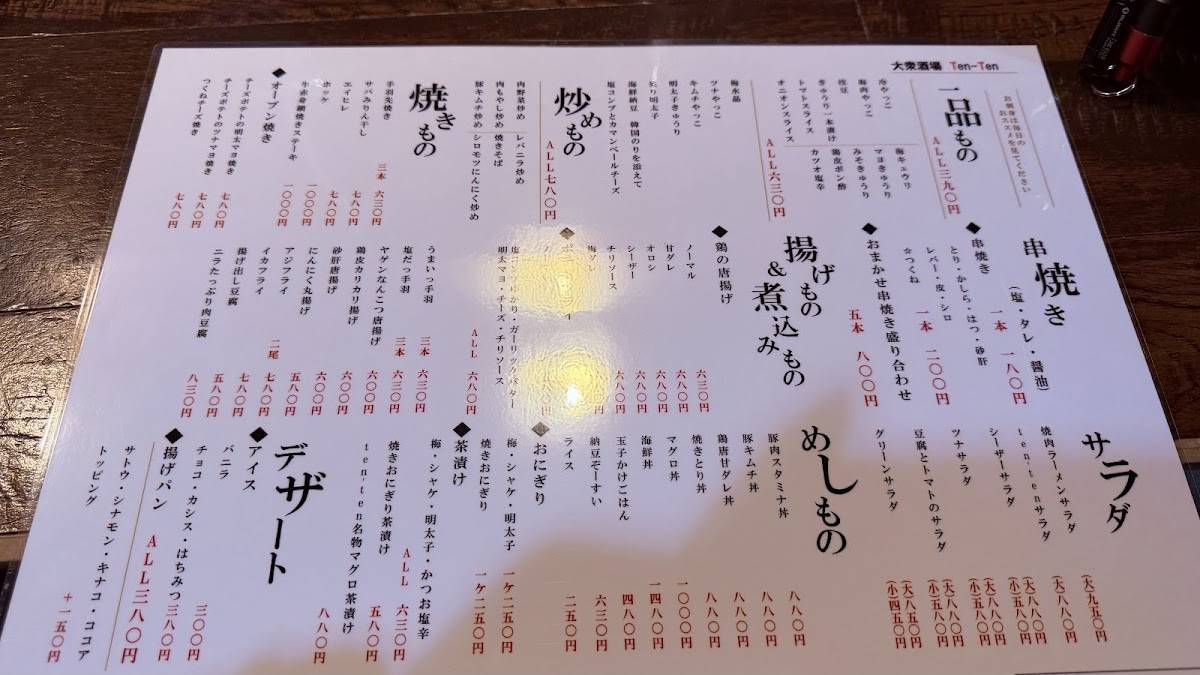 大衆酒場 Ten-Ten
お刺身は毎日の
おススメを見てください
一品もの
ALL三九〇円
冷やっこ
海肉やっこ
枝豆
きゅうり一本漬け
トマトスライス
オニオンスライス
梅キュウリ
マヨきゅうり
みそきゅうり
鶏皮ポン酢
カツオ塩辛
ALL六三〇円
梅水晶
ツナやっこ
キムチやっこ
明太子きゅうり
炙り明太子
海鮮納豆 韓国のりを添えて
塩コンブとカマンベールチーズ
炒めもの
ALL七八〇円
肉野菜炒め
肉もやし炒め
豚キムチ炒め
レバニラ炒め
焼きそば
シロモツにんにく炒め
焼きもの
手羽先焼き 三本 六三〇円
サバみりん干し 七八〇円
エイヒレ 七八〇円
ホッケ 一〇〇〇円
牛赤身網焼きステーキ 一〇〇〇円
◆オーブン焼き
チーズポテトの明太マヨ焼き 七八〇円
チーズポテトのツナマヨ焼き 七八〇円
つくねチーズ焼き 七八〇円
串焼き
(塩・タレ・醤油)
◆串焼き 一本 一八〇円
とり・かしら・はつ・砂肝
レバー・皮・シロ
☆つくね 一本 二〇〇円
◆おまかせ串焼き盛り合わせ
五本 八〇〇円
揚げもの
&煮込みもの
◆鶏の唐揚げ
ノーマル 六三〇円
甘ダレ 六八〇円
オロシ 六八〇円
シーザー 六八〇円
チリソース 六八〇円
梅ダレ
明太マヨ・チーズ・チリソース
ALL 六八〇円
うまいっ手羽 三本 六三〇円
塩だっ手羽 三本 六三〇円
ヤゲンなんこつ唐揚げ 六〇〇円
鶏皮カリカリ揚げ 六〇〇円
砂肝唐揚げ 六〇〇円
にんにく丸揚げ 六〇〇円
アジフライ 五八〇円
イカフライ 二尾 七八〇円
揚げ出し豆腐 五八〇円
ニラたっぷり肉豆腐 八三〇円
サラダ
焼肉ラーメンサラダ (大)九五〇円
ten-tenサラダ (大)八八〇円
シーザーサラダ (大)八八〇円
(小)五八〇円
ツナサラダ (大)八八〇円
(小)五八〇円
豆腐とトマトのサラダ (大)八八〇円
(小)五八〇円
グリーンサラダ (大)八五〇円
(小)四五〇円
めしもの
豚肉スタミナ丼 八八〇円
豚キムチ丼 八八〇円
鶏唐甘ダレ丼 八八〇円
焼きとり丼 八八〇円
マグロ丼 一〇〇〇円
海鮮丼 一四八〇円
玉子かけごはん 四八〇円
納豆ぞーすい 六三〇円
ライス 二五〇円
◆おにぎり
梅・シャケ・明太子・かつお塩辛
一ケ二五〇円
焼きおにぎり 一ケ二五〇円
◆茶漬け
梅・シャケ・明太子・かつお塩辛
ALL 六三〇円
焼きおにぎり茶漬け 五八〇円
ten-ten名物マグロ茶漬け
八八〇円
デザート
◆アイス
バニラ 三〇〇円
チョコ・カシス・はちみつ 三八〇円
◆揚げパン ALL三八〇円
サトウ・シナモン・キナコ・ココア
トッピング +一五〇円